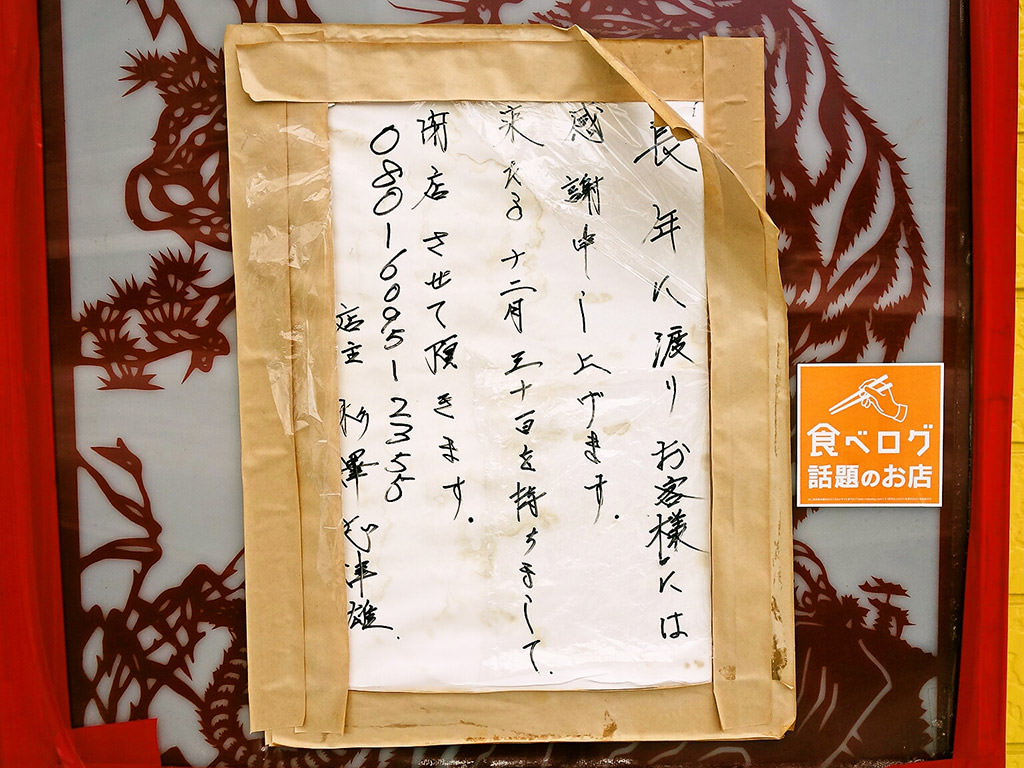 長年に渡りお客様には
感謝申し上げます.
来たる十二月三十一日を持ちまして.
閉店させて頂きます.
080-6095-2355
店主 杉澤 志津雄.
食べログ
話題のお店